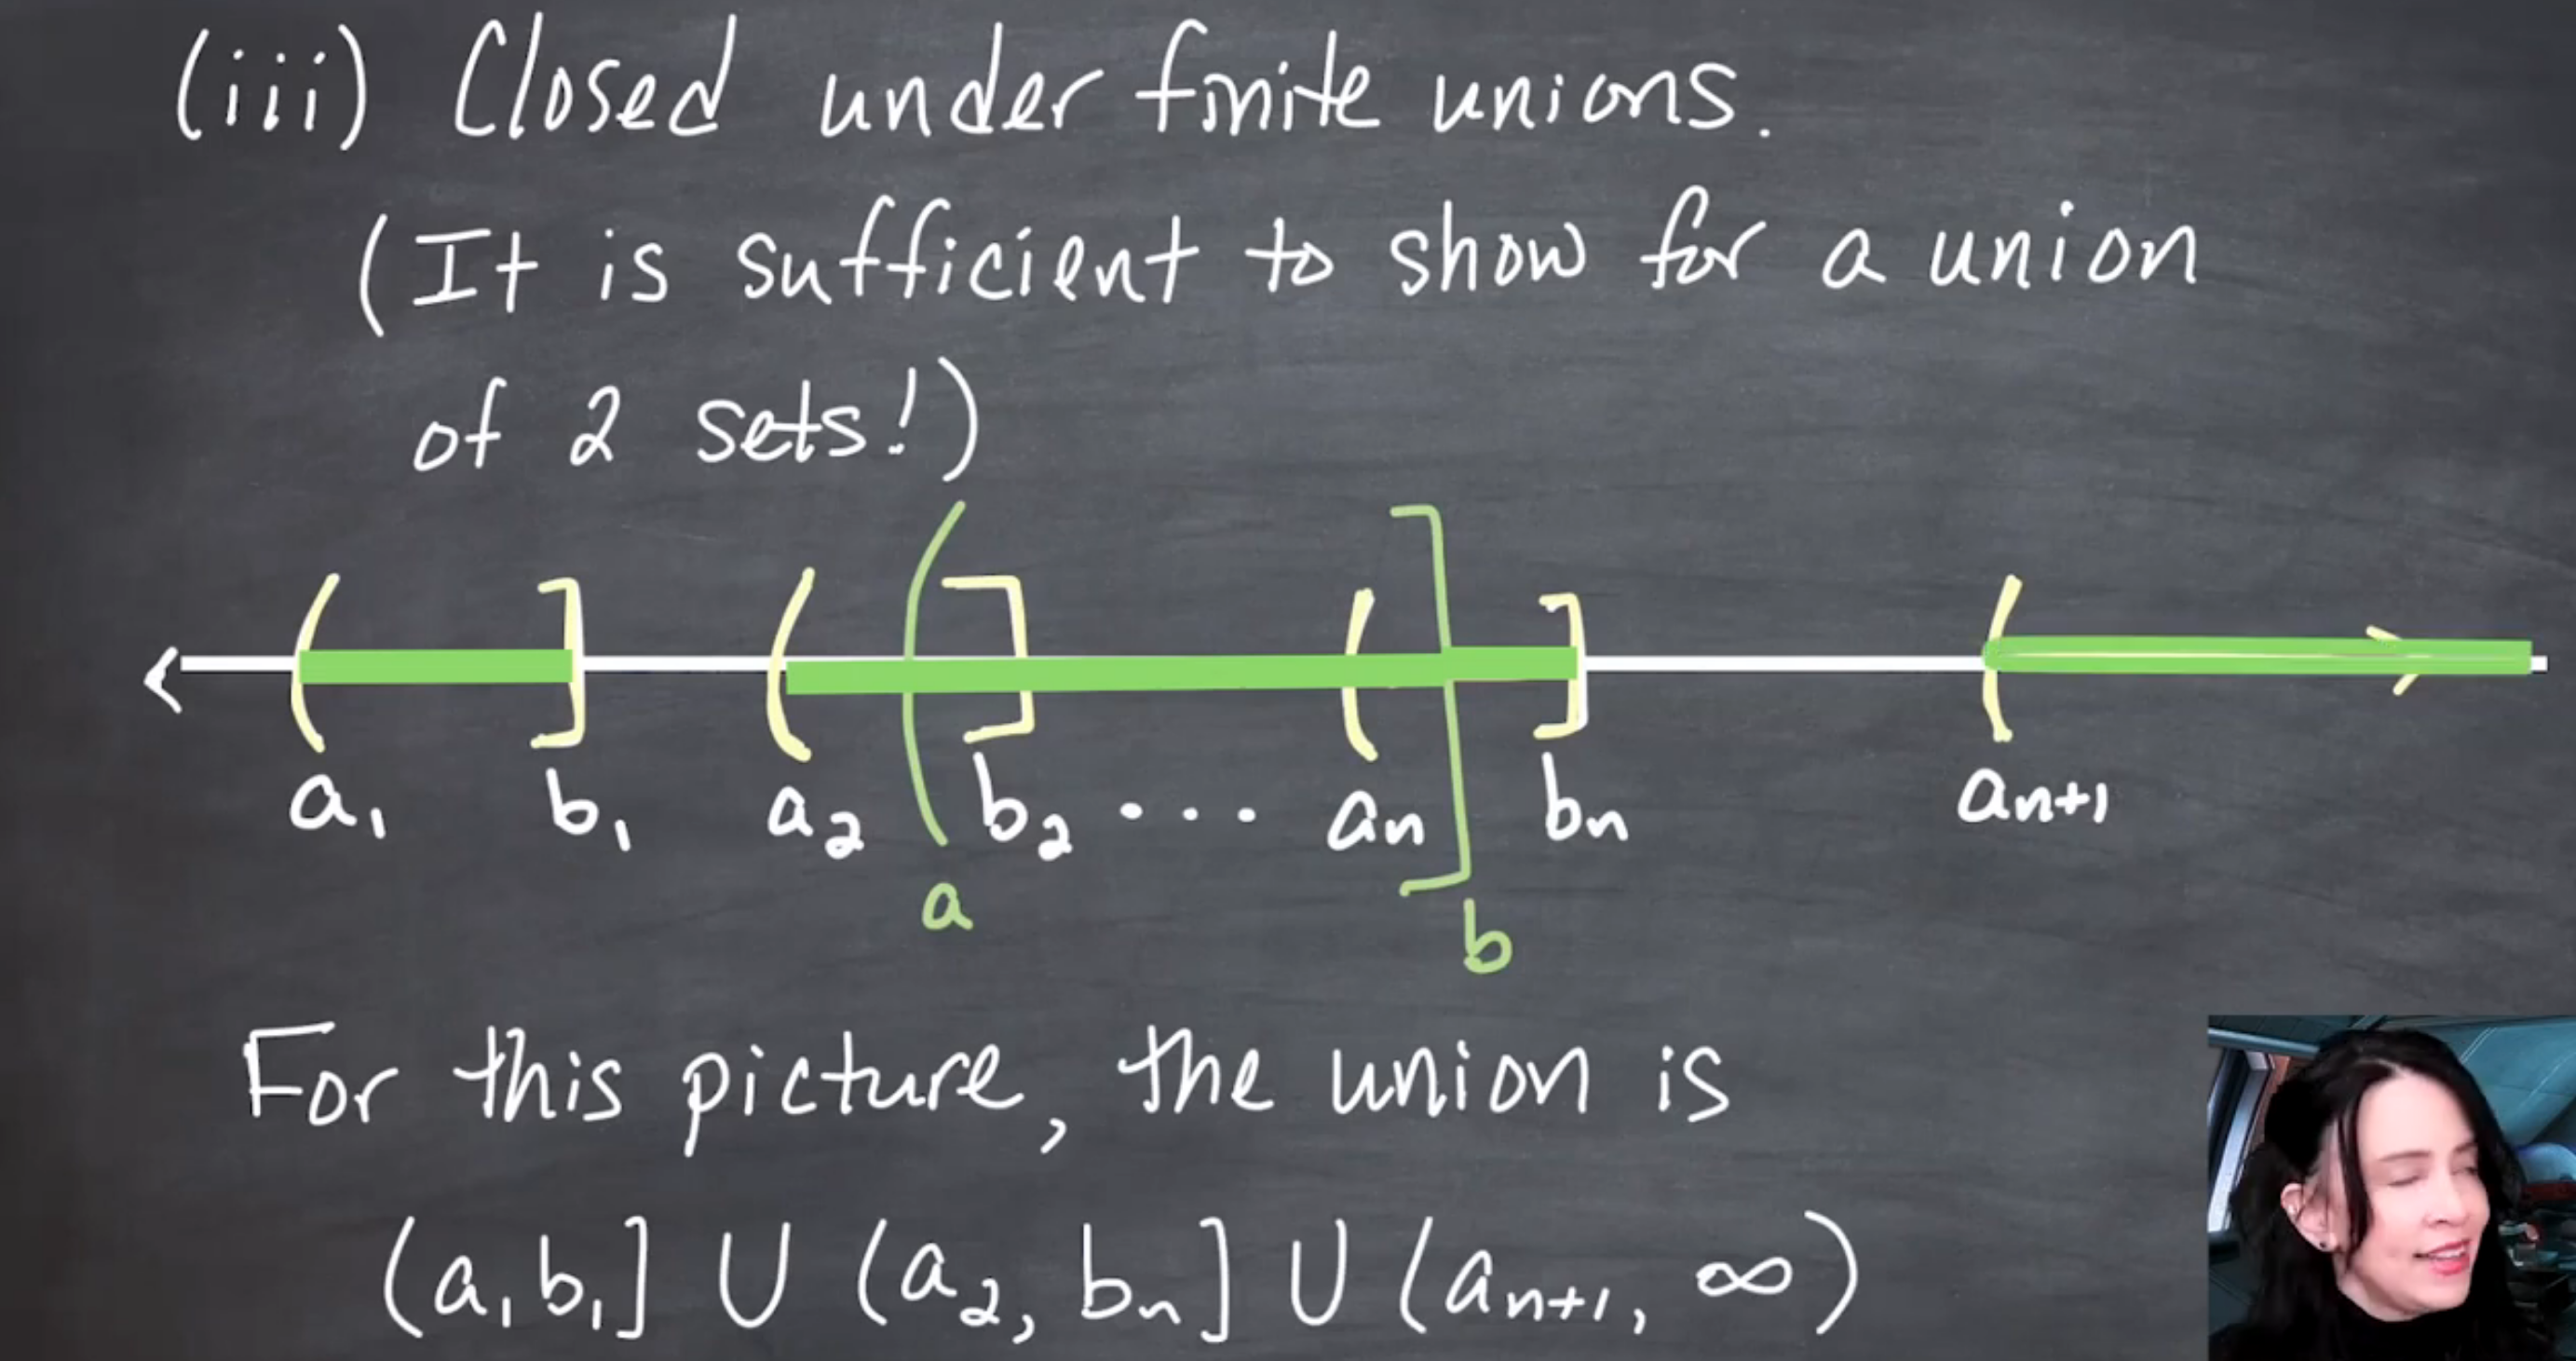 (iii) Closed under finite unions.
(It is sufficient to show for a union
of 2 sets!)
a₁ b₁ a₂ b₂ ... aₙ bₙ aₙ₊₁
a b
For this picture, the union is
(a₁b₁] ∪ (a₂, bₙ] ∪ (aₙ₊₁, ∞)